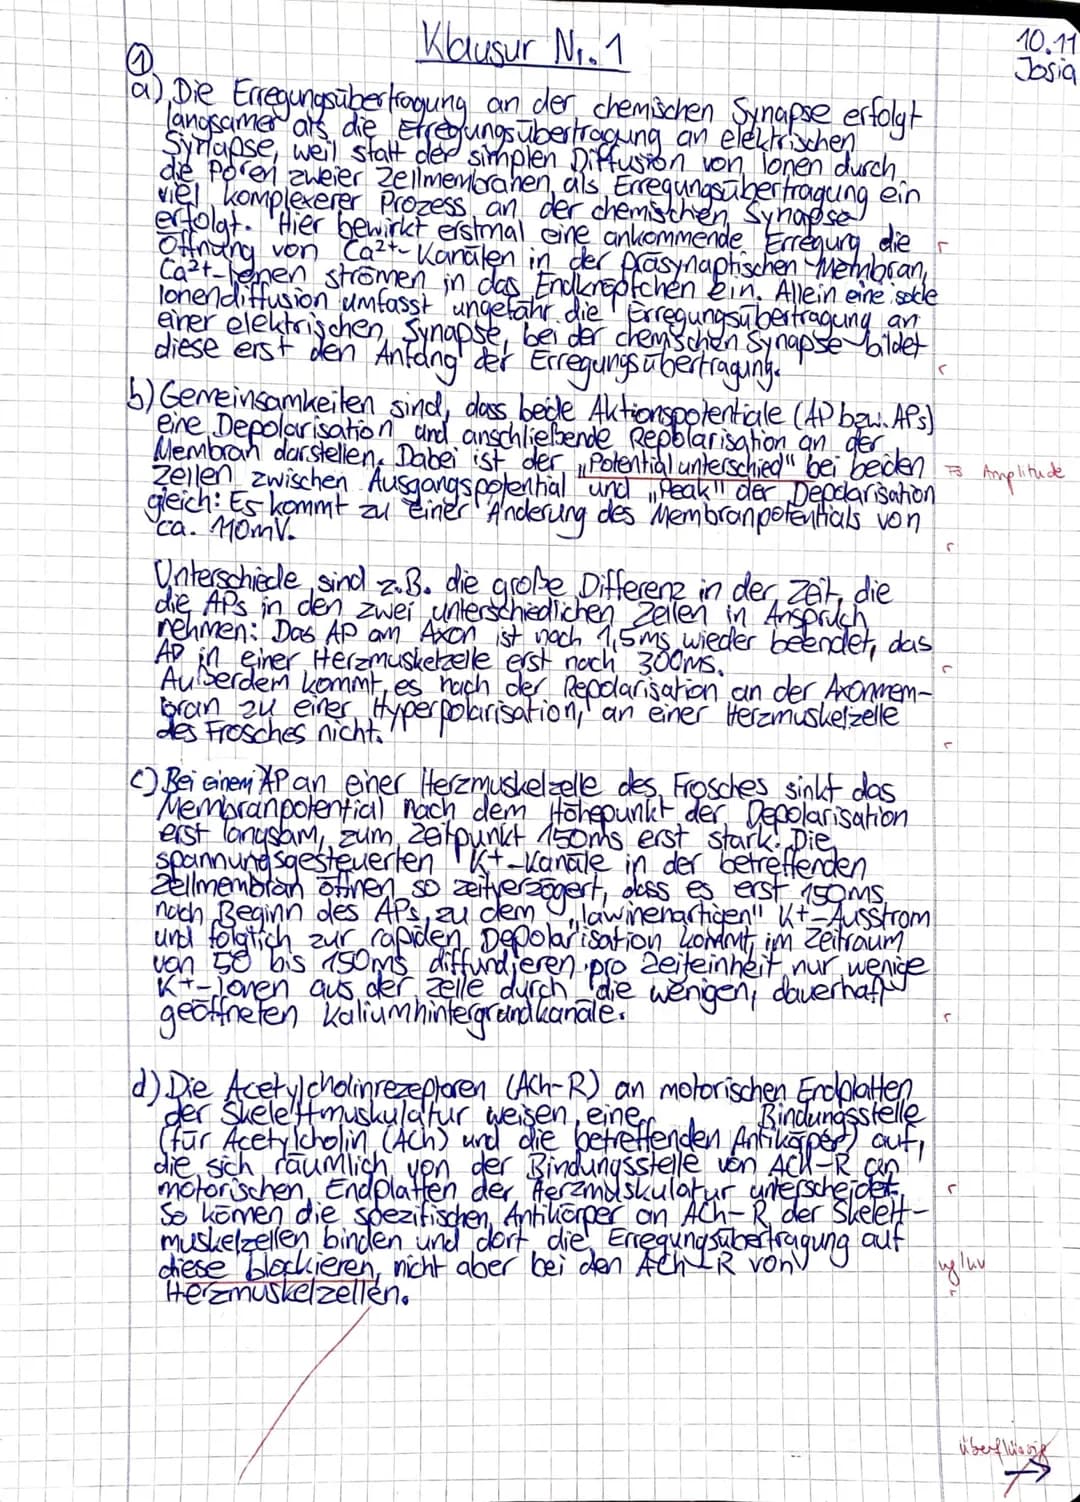 Klausur Nr. 1
10.11
Josia
①
a) Die Erregungsübertragung an der chemischen Synapse erfolgt
langsamer als die Erregungsübertragung an elektrischen
Synapse, weil statt der simplen Diffusion von Ionen durch
die Poren zweier Zellmembranen als Erregungsübertragung ein
viel komplexerer Prozess an der chemischen Synapse
erfolgt. Hier bewirkt erstmal eine ankommende Erregung die
r
Öffnung von Ca²⁺-Kanälen in der präsynaptischen Membran,
Ca²⁺-Ionen strömen in das Endknöpfchen ein. Allein eine solche
Ionendiffusion umfasst ungefähr die Erregungsübertragung an
einer elektrischen Synapse, bei der chemischen Synapse bildet
diese erst den Anfang der Erregungsübertragung.
r
b) Gemeinsamkeiten sind, dass beide Aktionspotentiale (AP bzw. APs)
eine Depolarisation und anschließende Repolarisation an der
Membran darstellen. Dabei ist der „Potentialunterschied" bei beiden
FB Amplitude
Zellen zwischen Ausgangspotential und „Peak" der Depolarisation
gleich: Es kommt zu einer Änderung des Membranpotentials von
ca. 110mV.
r
Unterschiede sind z.B. die große Differenz in der Zeit, die
die APs in den zwei unterschiedlichen Zellen in Anspruch
nehmen: Das AP am Axon ist nach 1,5ms wieder beendet, das
AP in einer Herzmuskelzelle erst nach 300ms.
r
Außerdem kommt es nach der Repolarisation an der Axonmem-
bran zu einer Hyperpolarisation, an einer Herzmuskelzelle
des Frosches nicht.
r
c) Bei einem AP an einer Herzmuskelzelle des Frosches sinkt das
Membranpotential nach dem Höhepunkt der Depolarisation
erst langsam, zum Zeitpunkt 150ms erst stark. Die
spannungsgesteuerten K+-Kanäle in der betreffenden
Zellmembran öffnen so zeitverzögert, dass es erst 150ms
nach Beginn des APs zu dem „lawinenartigen" K+-Ausstrom
und folglich zur rapiden Depolarisation kommt, im Zeitraum
von 50 bis 150ms diffundieren pro Zeiteinheit nur wenige
K+-Ionen aus der Zelle durch die wenigen, dauerhaft
geöffneten Kaliumhintergrundkanäle.
r
d) Die Acetylcholinrezeptoren (ACh-R) an motorischen Endplatten
der Skelettmuskulatur weisen eine Bindungsstelle
(für Acetylcholin (ACh) und die betreffenden Antikörper) auf,
die sich räumlich von der Bindungsstelle von ACh-R an
motorischen Endplatten der Herzmuskulatur unterscheidet.
r
So können die spezifischen Antikörper an ACh-R der Skelett-
muskelzellen binden und dort die Erregungsübertragung auf
diese blockieren, nicht aber bei den ACh-R von
Herzmuskelzellen.
r
überflüssig